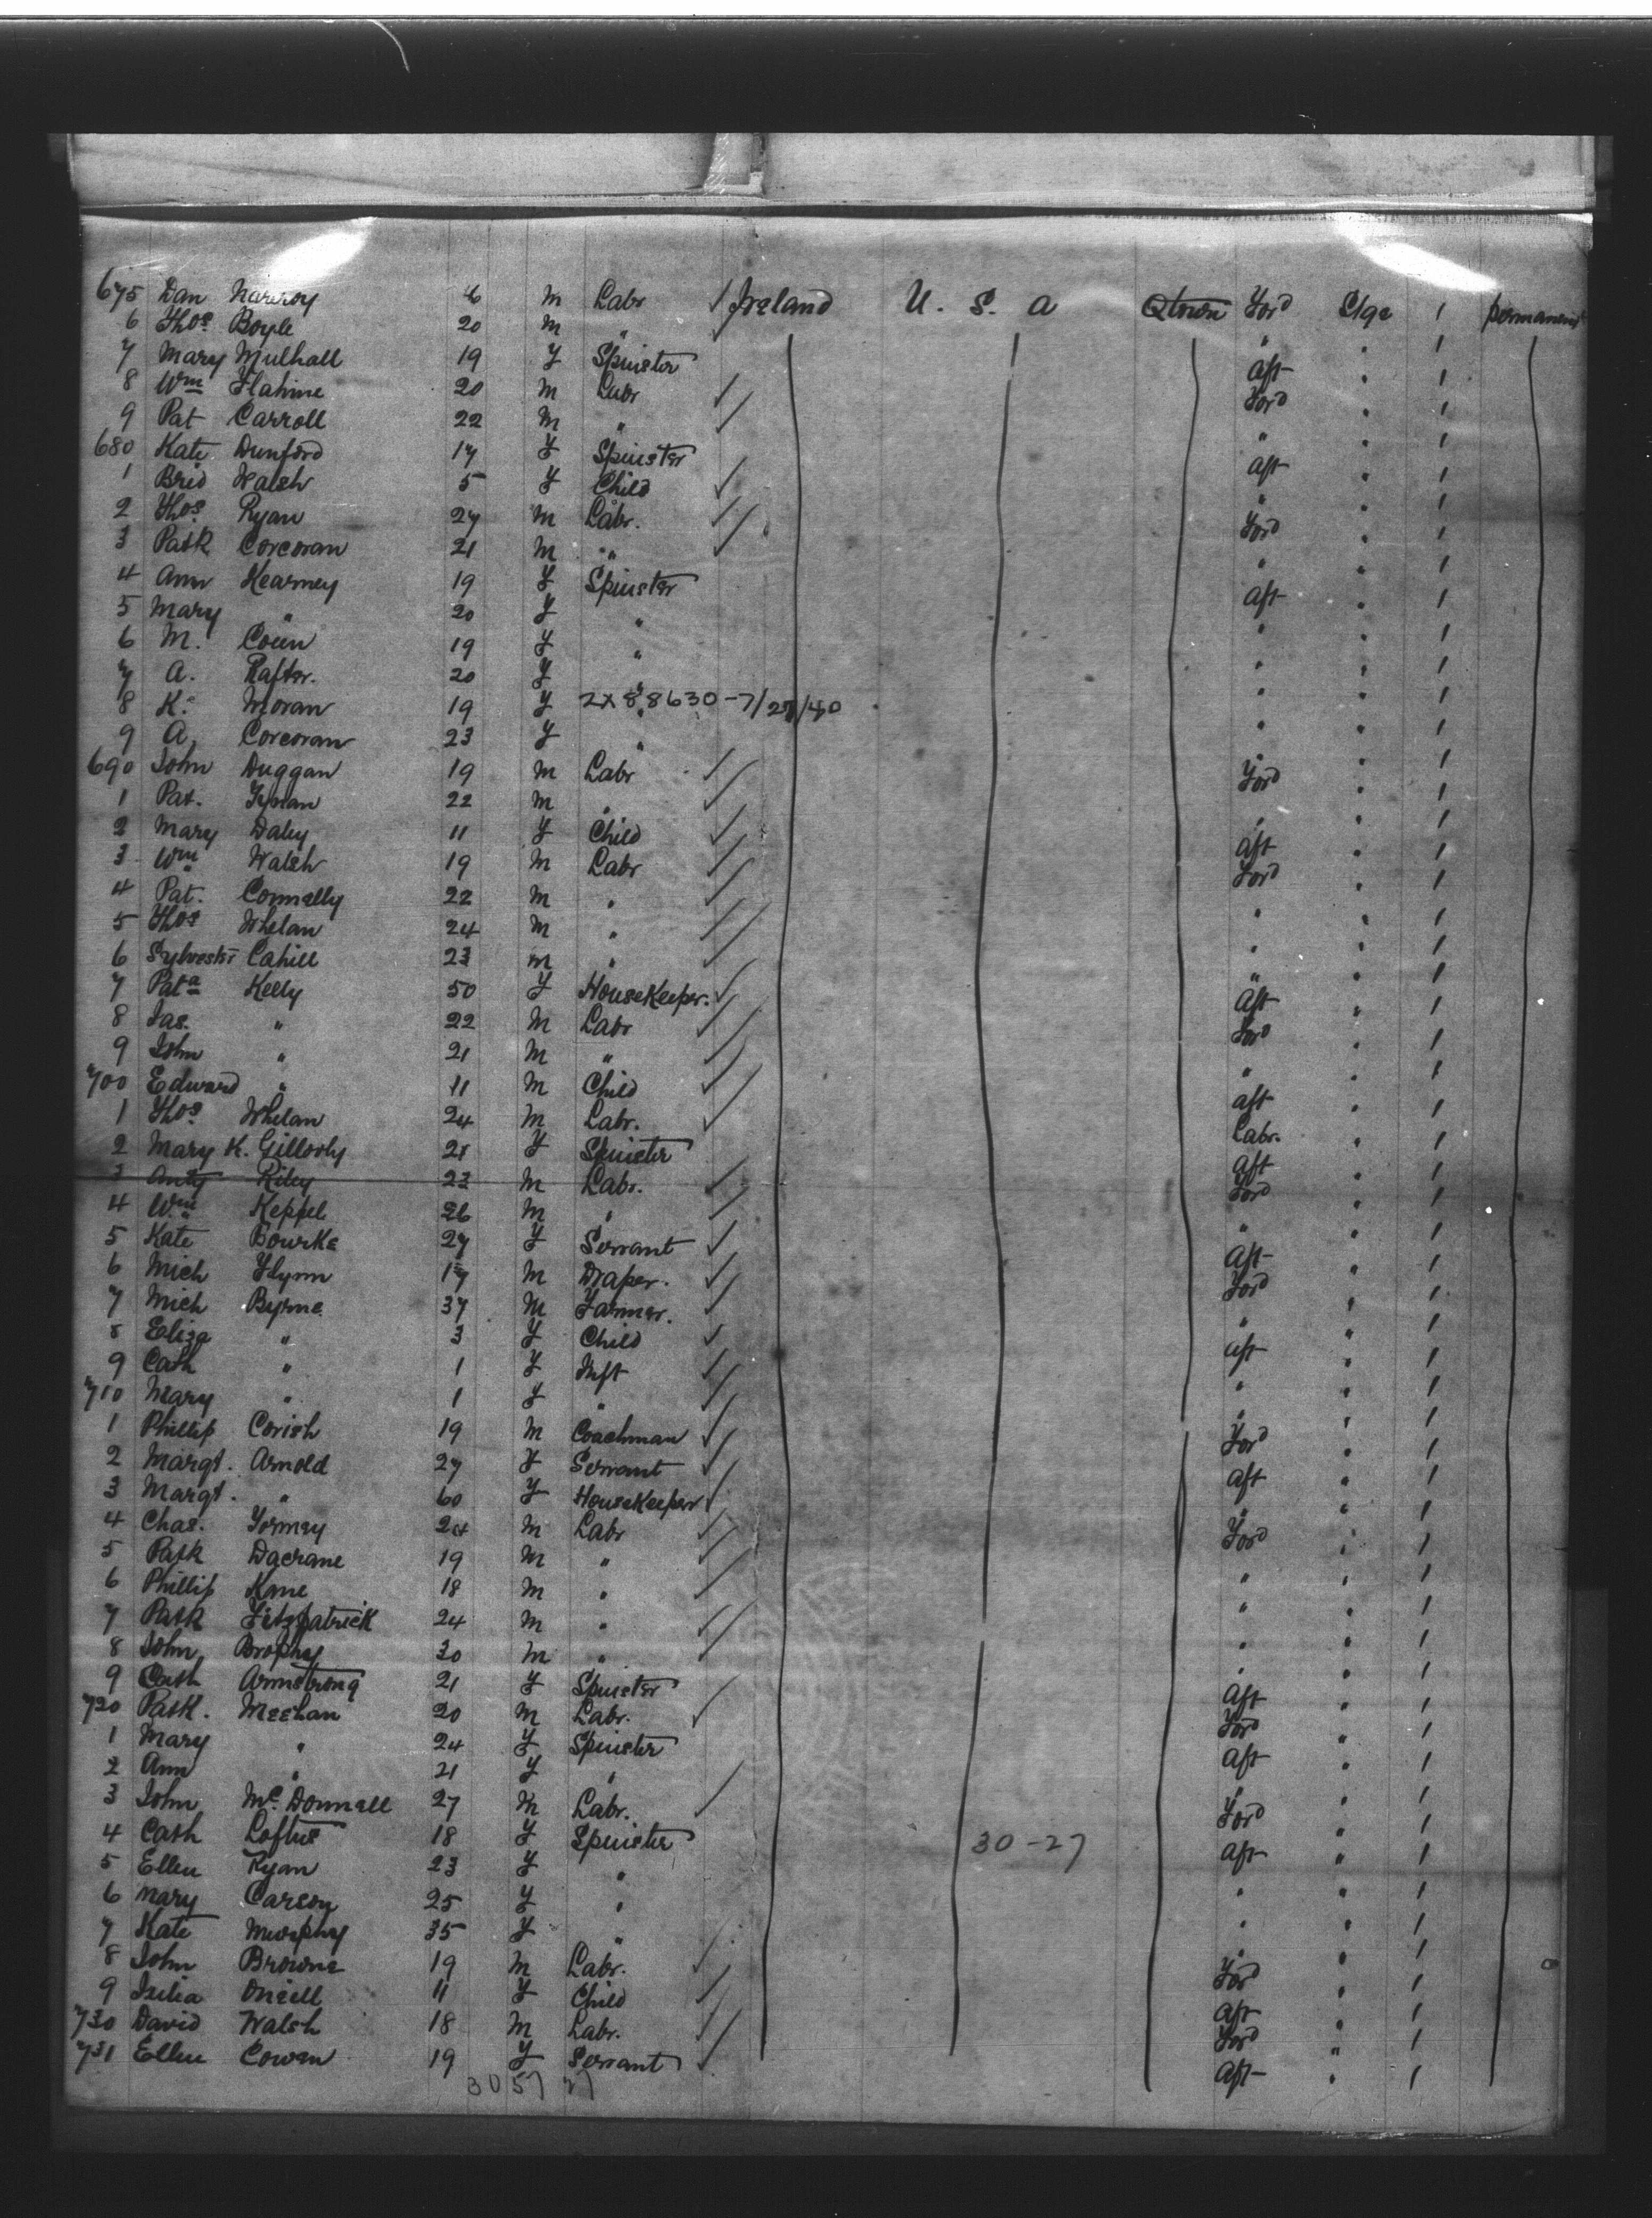 675 Dan Narroy 26 M Labr Ireland U. S. A Qtown Ford Stge 1 permanent
6 Thos Boyle 20 M " " " 1
7 Mary Mulhall 19 F Spinster Aft " 1
8 Wm Flahine 20 M Labr Ford " 1
9 Pat Carroll 22 M " " " 1
680 Kate Dunford 17 F Spinster Aft " 1
1 Brid Walsh 5 F Child " " 1
2 Thos Ryan 27 M Labr. Ford " 1
3 Patk Corcoran 21 M " " " 1
4 Ann Kearney 19 F Spinster Aft " 1
5 Mary " 20 F " " " 1
6 M. Coun 19 F " " " 1
7 A. Rafter. 20 F " " " 1
8 K. Moran 19 F " 2X88630-7/27/40 " " 1
9 A. Corcoran 23 F " " " 1
690 John Duggan 19 M Labr Ford " 1
1 Pat. Tynan 22 M " " " 1
2 Mary Daley 11 F Child Aft " 1
3 Wm Walsh 19 M Labr Ford " 1
4 Pat. Connelly 22 M " " " 1
5 Thos Whelan 24 M " " " 1
6 Sylvester Cahill 23 M " " " 1
7 Pata Kelly 50 F Housekeeper. Aft " 1
8 Jas. " 22 M Labr Ford " 1
9 John " 21 M " " " 1
700 Edward " 11 M Child aft " 1
1 Thos Whelan 24 M Labr. Labr. " 1
2 Mary K. Gillooly 21 F Spinster Aft " 1
3 Anty Riley 23 M Labr. Ford " 1
4 Wm Keppel 26 M " " " 1
5 Kate Bourke 27 F Servant Aft " 1
6 Mich Flynn 17 M Draper. Ford " 1
7 Mich Byrne 37 M Farmer. " " 1
8 Eliza " 3 F Child aft " 1
9 Cath " 1 F Inft " " 1
710 Mary " 1 F " " " 1
1 Phillip Corish 19 M Coachman Ford " 1
2 Margt. Arnold 27 F Servant Aft " 1
3 Margt. " 60 F Housekeeper " " 1
4 Chas. Formey 24 M Labr Ford " 1
5 Patk Dacrane 19 M " " " 1
6 Phillip Kane 18 M " " " 1
7 Patk Fitzpatrick 24 M " " " 1
8 John Brophy 30 M " " " 1
9 Cath Armstrong 21 F Spinster Aft " 1
720 Patk. Meehan 20 M Labr. Ford " 1
1 Mary " 24 F Spinster Aft " 1
2 Ann " 21 F " " " 1
3 John McDonnell 27 M Labr. Ford " 1
4 Cath Loftus 18 F Spinster 30-27 Aft " 1
5 Ellen Ryan 23 F " " " 1
6 Mary Carson 25 F " " " 1
7 Kate Murphy 35 F " " " 1
8 John Browne 19 M Labr. Ford " 1
9 Julia Oneill 11 F Child Aft " 1
730 David Walsh 18 M Labr. Ford " 1
731 Ellen Cowen 19 F Servant Aft " 1